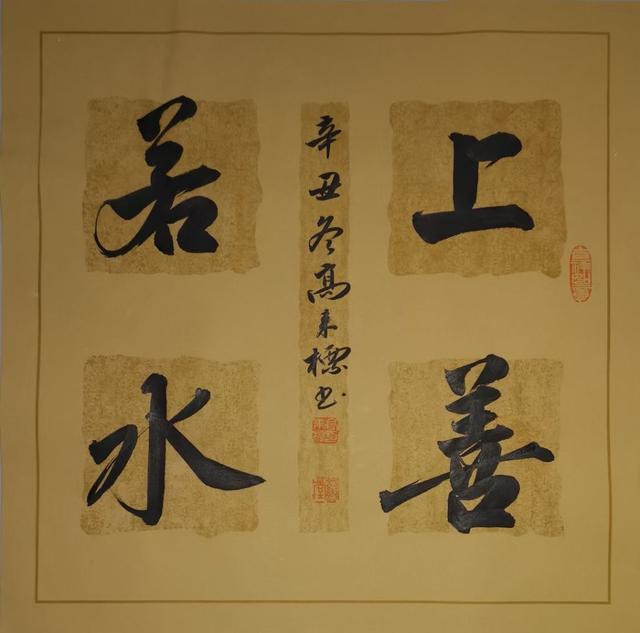 上善
若水
辛丑冬高来標书